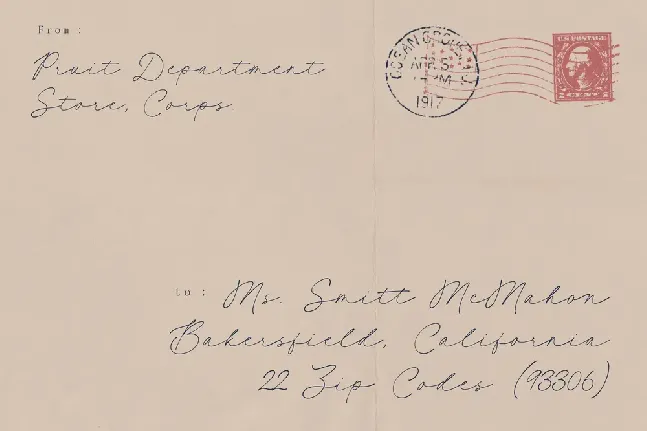 From :
Pruit Department
Store, Corps.
OCEAN GROVE
APR 5
PM
1917
U.S. POSTAGE
to :
Ms. Smitt McMahon
Bakersfield, California
22 Zip Codes (93306)